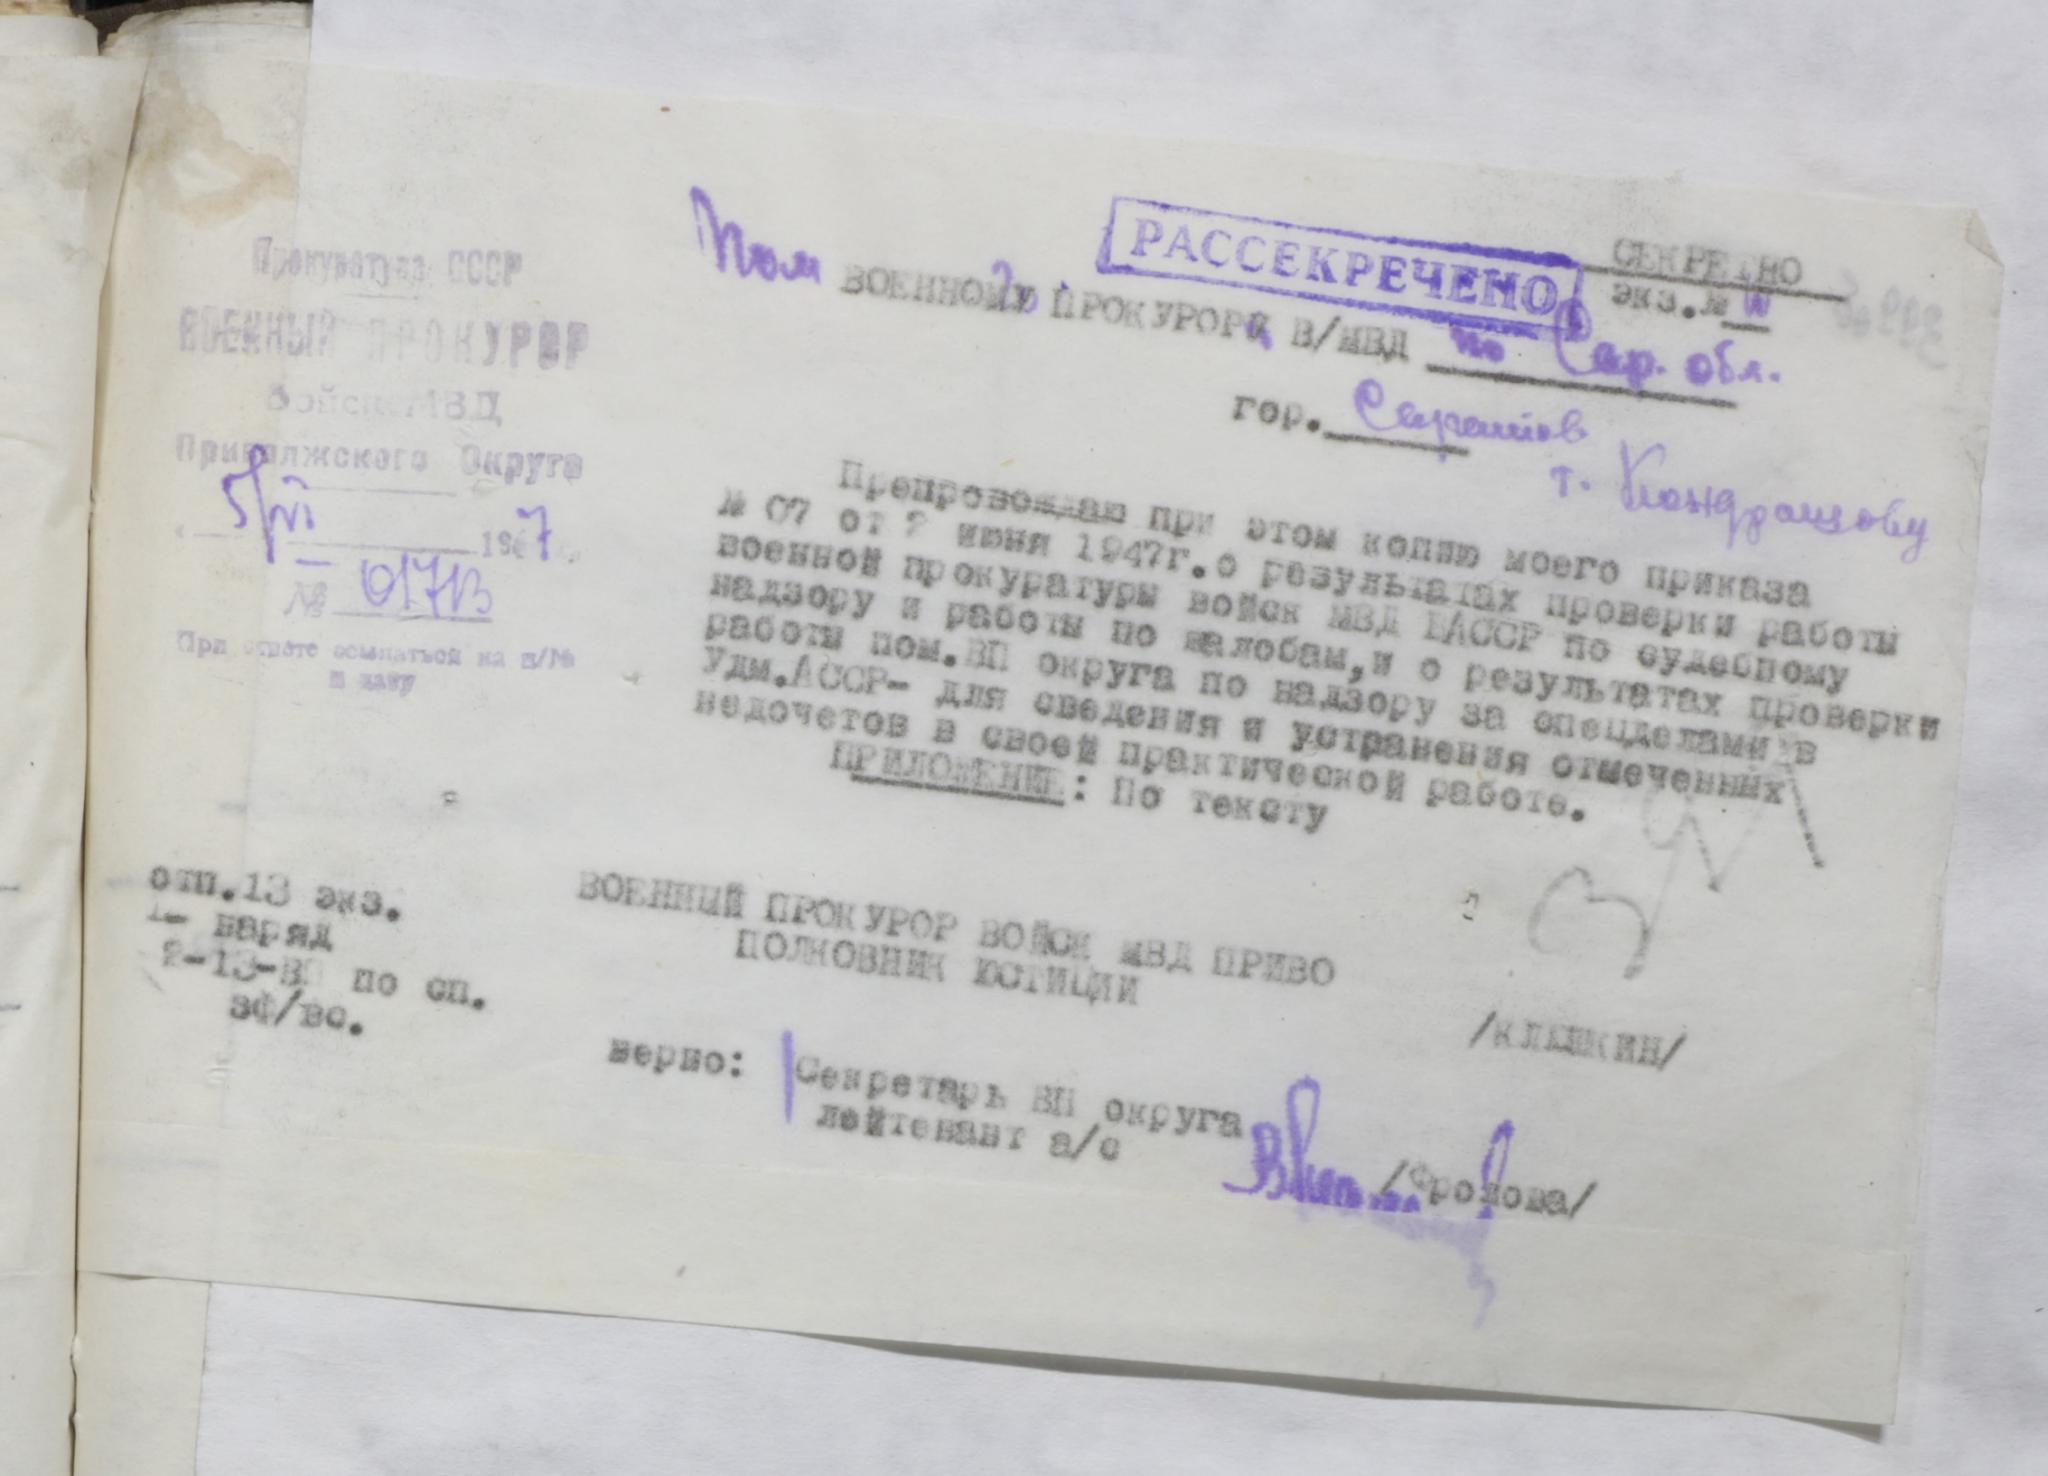 Прокуратура СССР
ВОЕННЫЙ ПРОКУРОР
Войск МВД
Приволжского Округа
5/VI 1947
№ 01713
При ответе ссылаться на н/№
и дату
РАССЕКРЕЧЕНО
СЕКРЕТНО
экз.№
Пом ВОЕННОГО ПРОКУРОРА В/МВД по Сар. обл.
гор. Саратов
т. Кондрашову
Препровождаю при этом копию моего приказа
№ 07 от 2 июня 1947г. о результатах проверки работы
военной прокуратуры войск МВД БАССР по судебному
надзору и работы по жалобам, и о результатах проверки
работы пом.ВП округа по надзору за спецделами в
Удм.АССР- для сведения и устранения отмеченных
недочетов в своей практической работе.
ПРИЛОЖЕНИЕ: По тексту
отп.13 экз.
1- наряд
2-13-ВП по сп.
зф/вс.
ВОЕННЫЙ ПРОКУРОР ВОЙСК МВД ПРИВО
ПОЛКОВНИК ЮСТИЦИИ
/КЛЯШКИН/
верно: Секретарь ВП округа
лейтенант а/с
/Фролова/